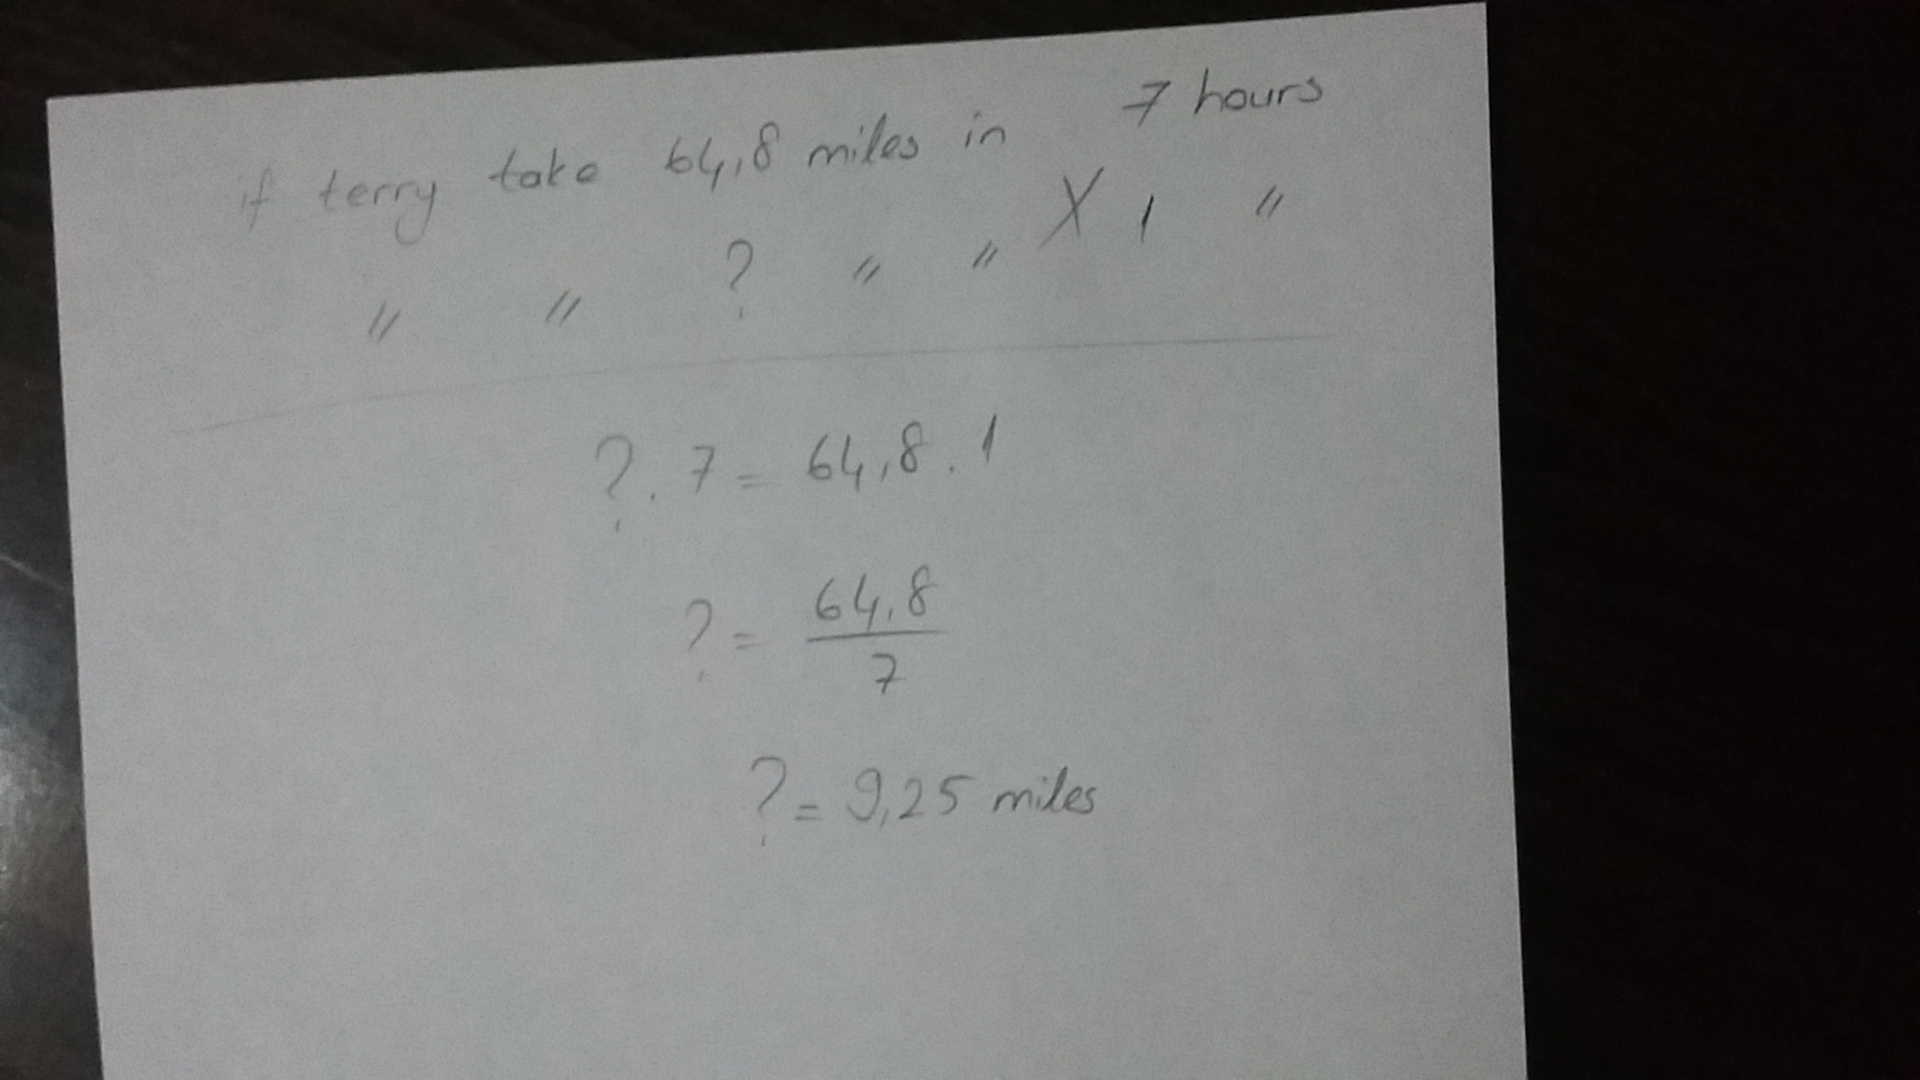 if terry take 64,8 miles in 7 hours
" " ? " " X 1 "
?. 7 = 64,8 . 1
? = 64,8 / 7
? = 9,25 miles